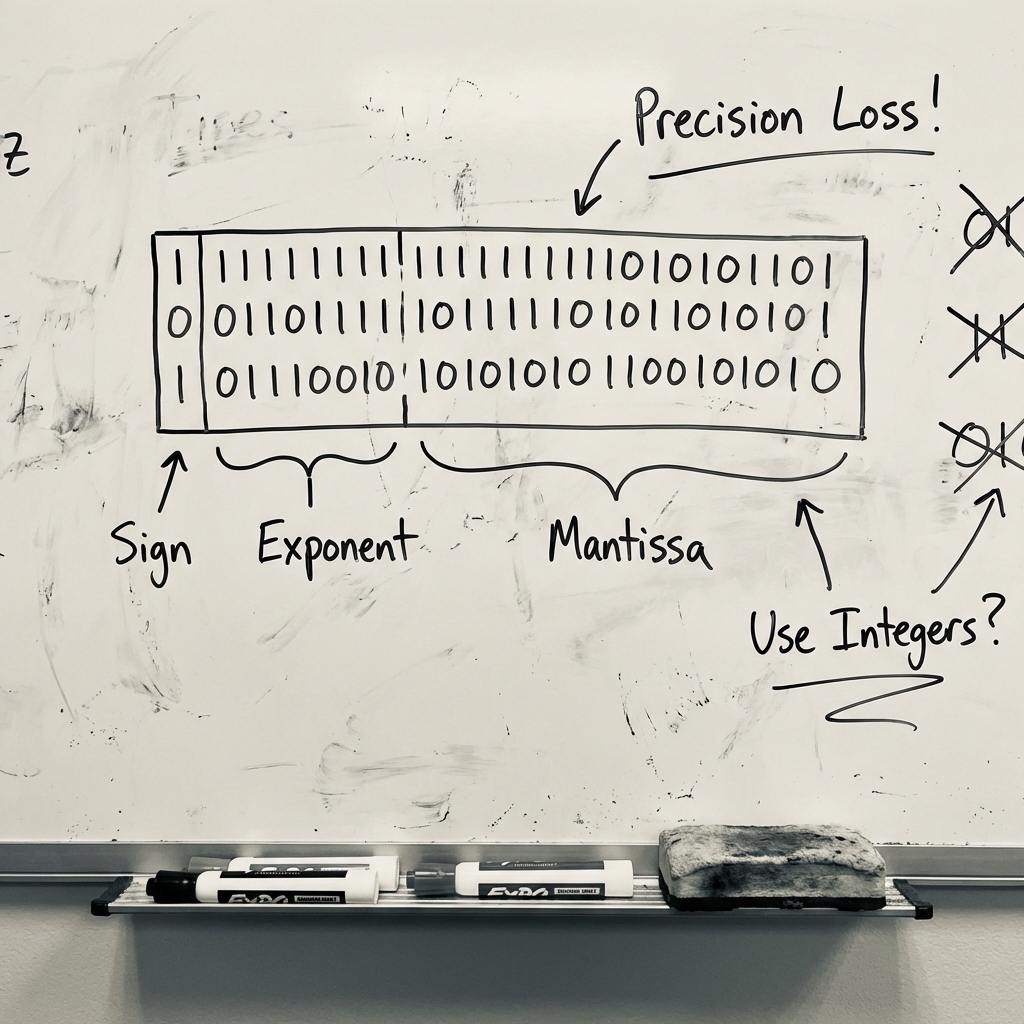 Z
Times
Precision Loss!
1 11111111 1111111111010101101
0 01101111 101111101011010101
1 01110010 101010101100101010
01
11
010
Sign
Exponent
Mantissa
Use Integers?
EXPO
EXPO